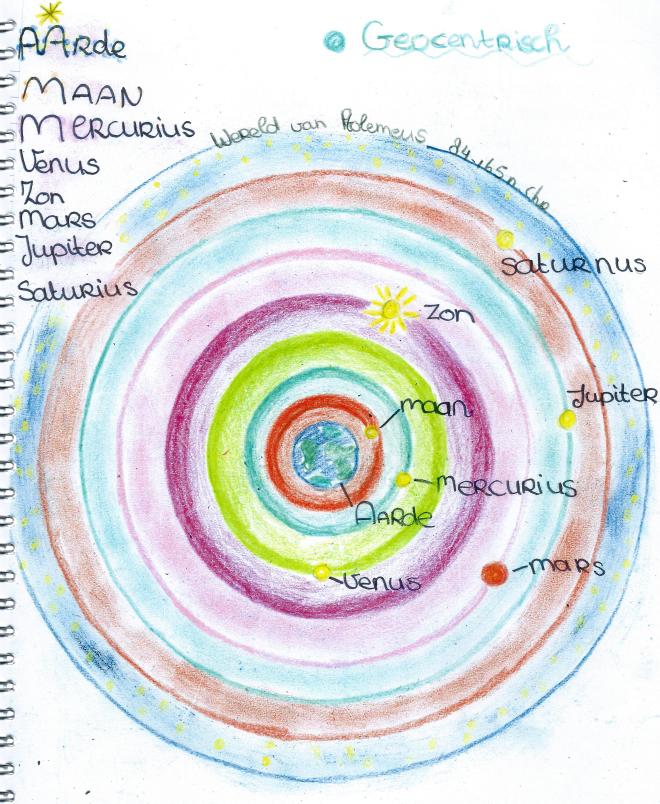 AArde
Geocentrisch
MAAN
Mercurius
Wereld van Ptolemeus
Venus
Zon
Mars
Jupiter
Saturius
Saturnus
Zon
Jupiter
maan
Mercurius
Aarde
mars
Venus